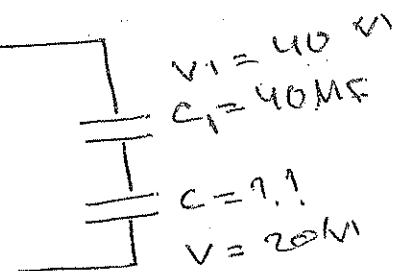 V1 = 40 (V)
C1 = 40 MF
C = ?.!
V = 20 (V)